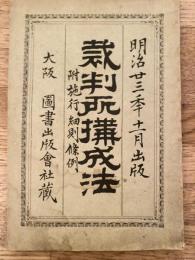 明治廿三年十一月出版
裁判所搆成法
附施行細則條例
大阪 圖書出版會社藏